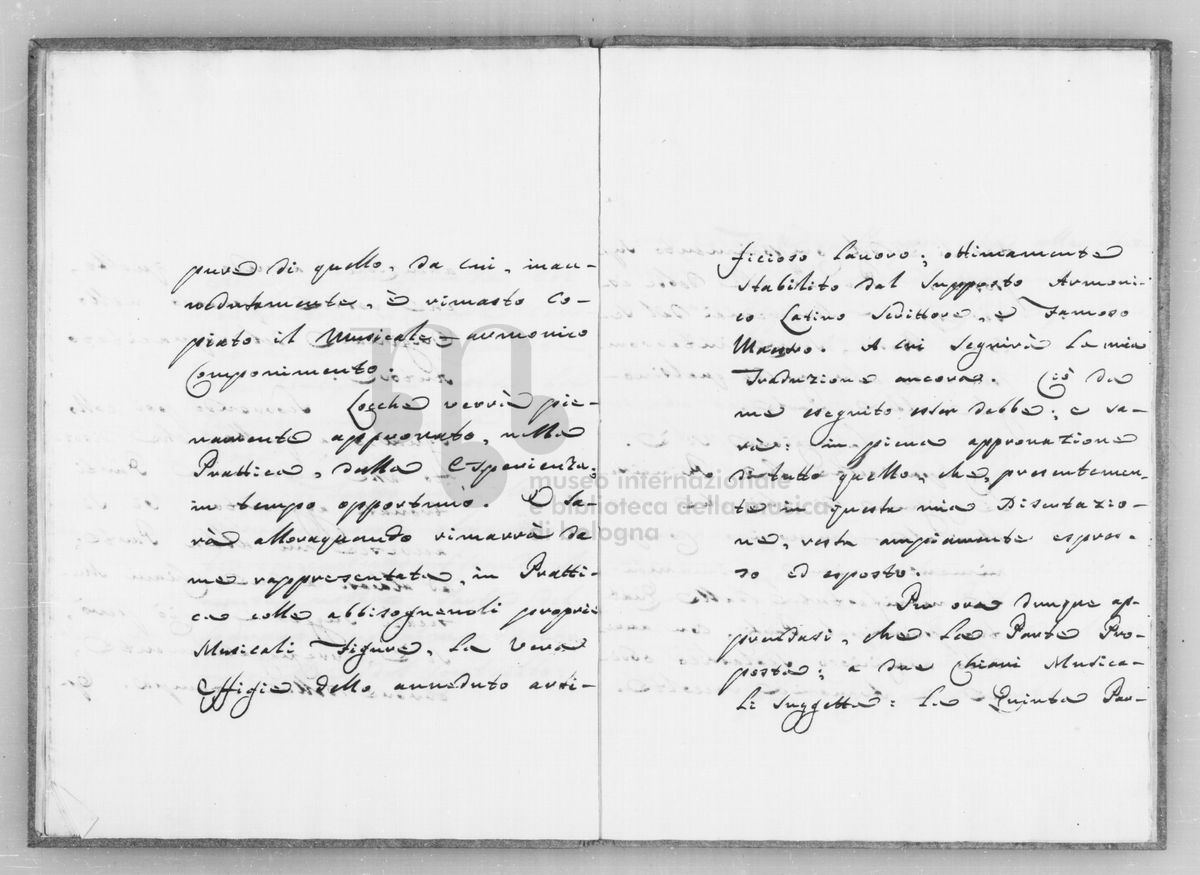 pure di quello, da cui, inau-
vedutamente, è rimasto co-
piato il Musicale armonico
Componimento.
Locche verrà pie-
namente approvato, nella
Prattica, dalla Esperienza:
in tempo opportuno. E sa-
rà alloraquando rimarrà da
me rappresentata, in Pratti-
ca colle abbisognevoli proprie
Musicali Figure, la vera
Effigie dello avveduto arti-
ficioso lavoro; ottimamente
stabilito dal Supposto Armoni-
co Latino Scrittore, e Famoso
Maestro. A cui seguirà la mia
Traduzione ancora. Ciò da
me eseguito esser debbe; e sa-
rà: in piena approvazione
di tutto quello, che, presentemen-
te in questa mia Disertazio-
ne, resta ampiamente espres-
so ed esposto.
Per ora dunque ap-
prendasi, che la Parte Pro-
posta; a due Chiavi Musica-
li suggetta: la Quinta Par-
museo internazionale
e biblioteca della musica
di bologna